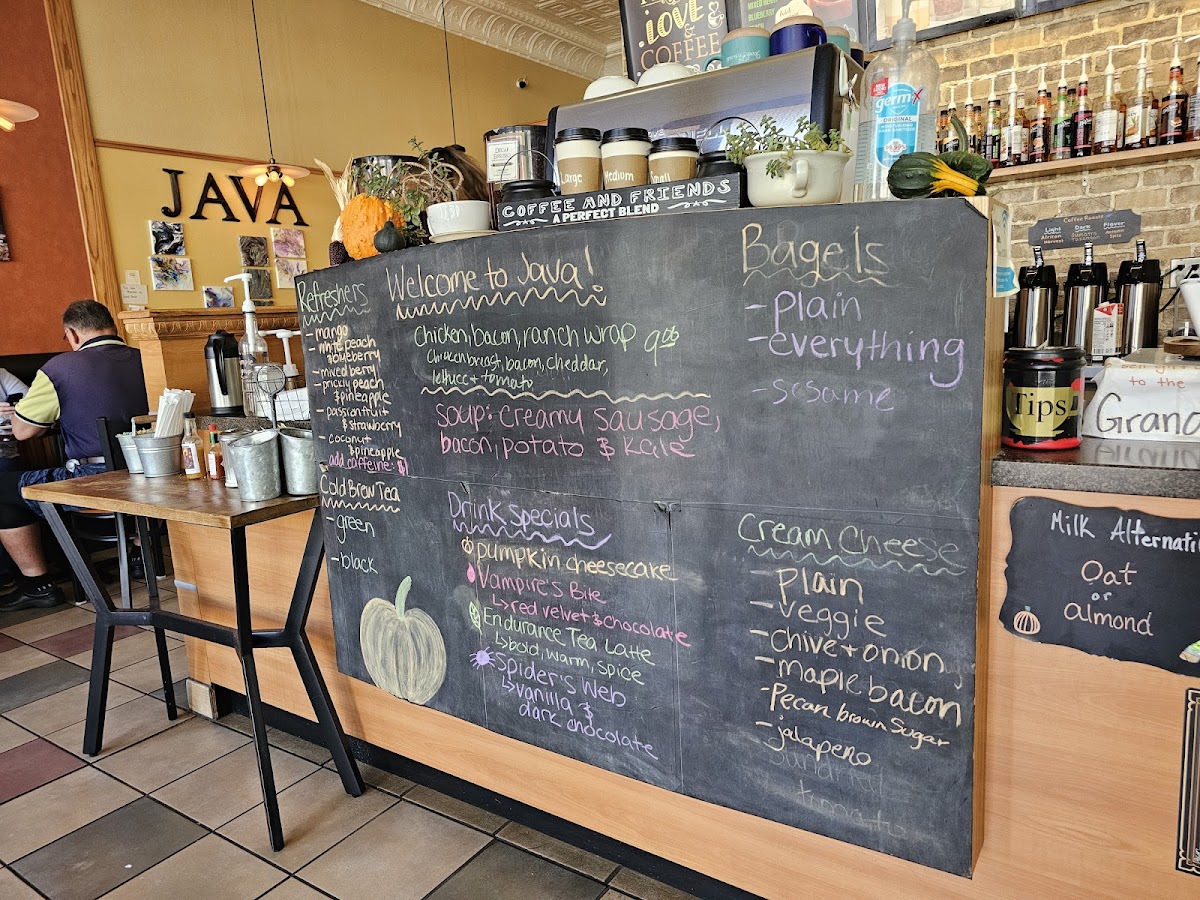 LOVE
COFFEE
JAVA
germ-x
ORIGINAL
Large
Medium
Small
COFFEE AND FRIENDS
A PERFECT BLEND
Refreshers
- mango
- white peach
& blueberry
- mixed berry
- prickly peach
& pineapple
- passionfruit
& strawberry
- coconut
& pineapple
add caffeine: $1
Cold Brew Tea
- green
- black
Welcome to Java!
Chicken, bacon, ranch wrap 900
Chicken breast, bacon, cheddar,
lettuce + tomato
Soup: creamy sausage,
bacon, potato & kale
Drink Specials
pumpkin cheesecake
Vampire's Bite
↳ red velvet & chocolate
Endurance Tea Latte
↳ bold, warm, spice
Spider's Web
↳ vanilla &
dark chocolate
Bagels
- Plain
- everything
- sesame
Cream Cheese
- Plain
- veggie
- chive + onion
- maple bacon
- Pecan brown Sugar
- jalapeno
sundried
tomato
Coffee Roasts
Light
Dark
Flavor
Tips
to the
Grand
Milk Alternati
Oat
or
almond